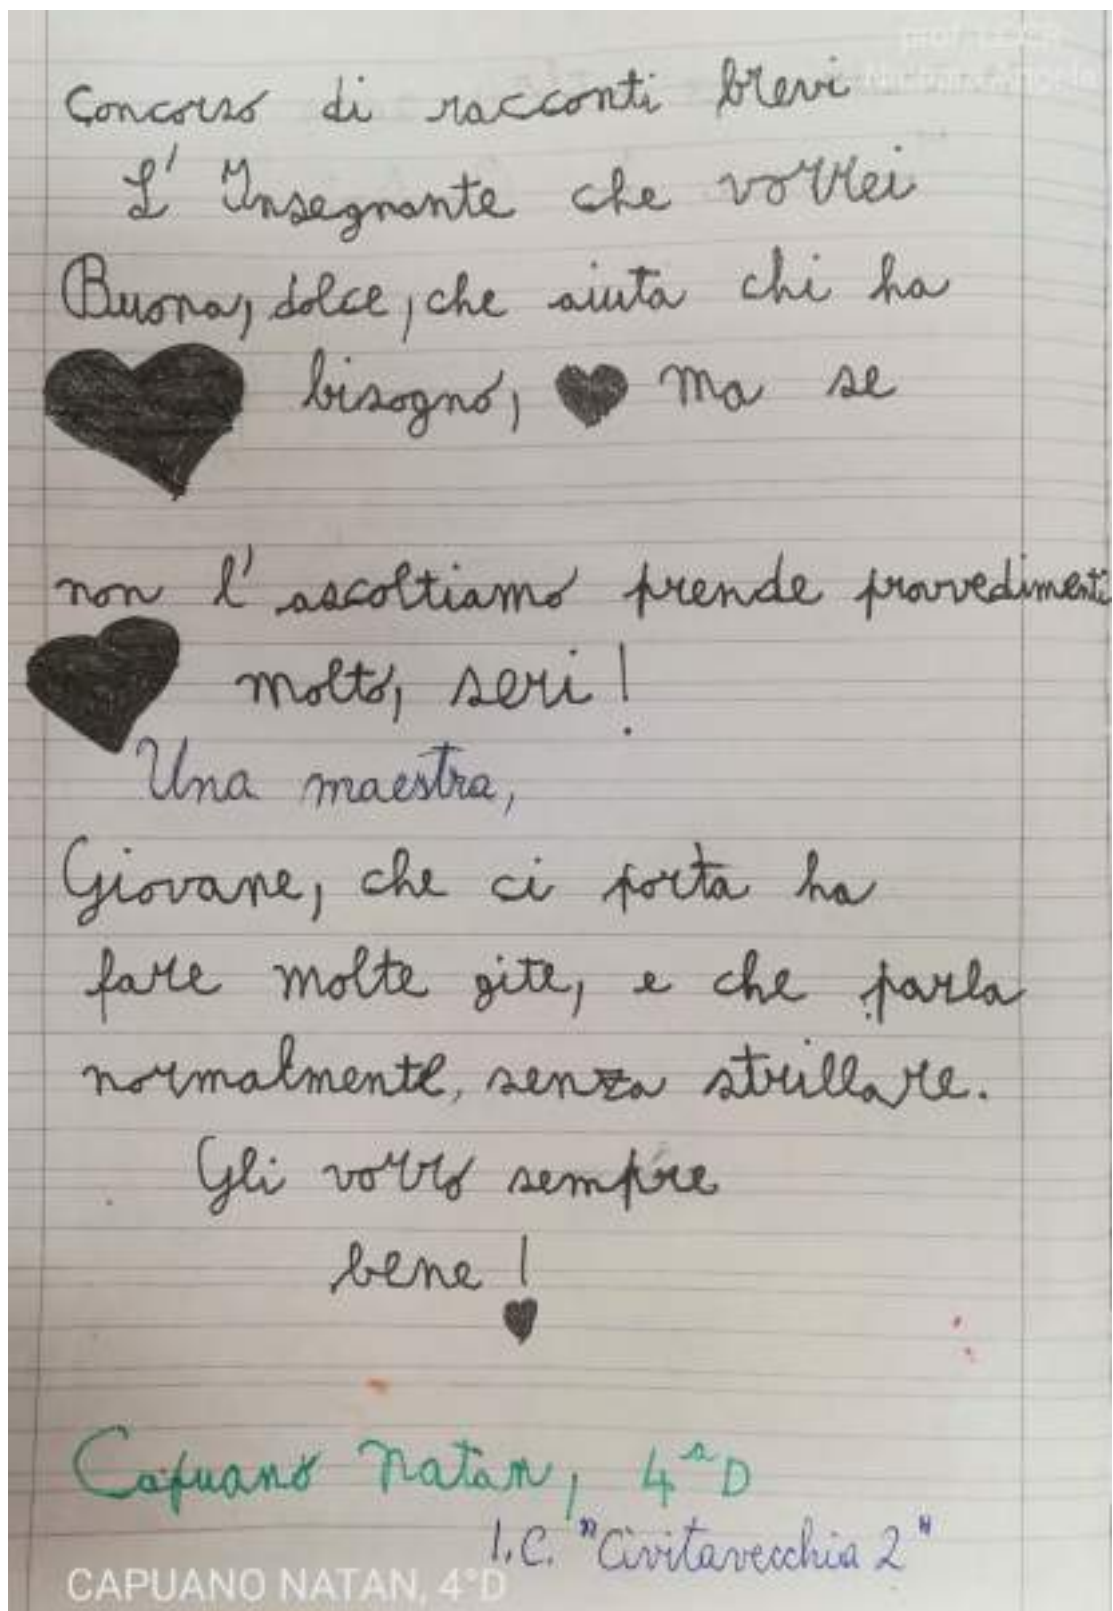 Concorso di racconti brevi
L' Insegnante che vorrei
Buona, dolce, che aiuta chi ha
bisogno, ma se
non l'ascoltiamo prende provvedimenti
molto, seri!
Una maestra,
Giovane, che ci porta ha
fare molte gite, e che parla
normalmente, senza strillare.
Gli vorrò sempre
bene!
Capuano Natan, 4ªD
I.C. "Civitavecchia 2"
CAPUANO NATAN, 4°D